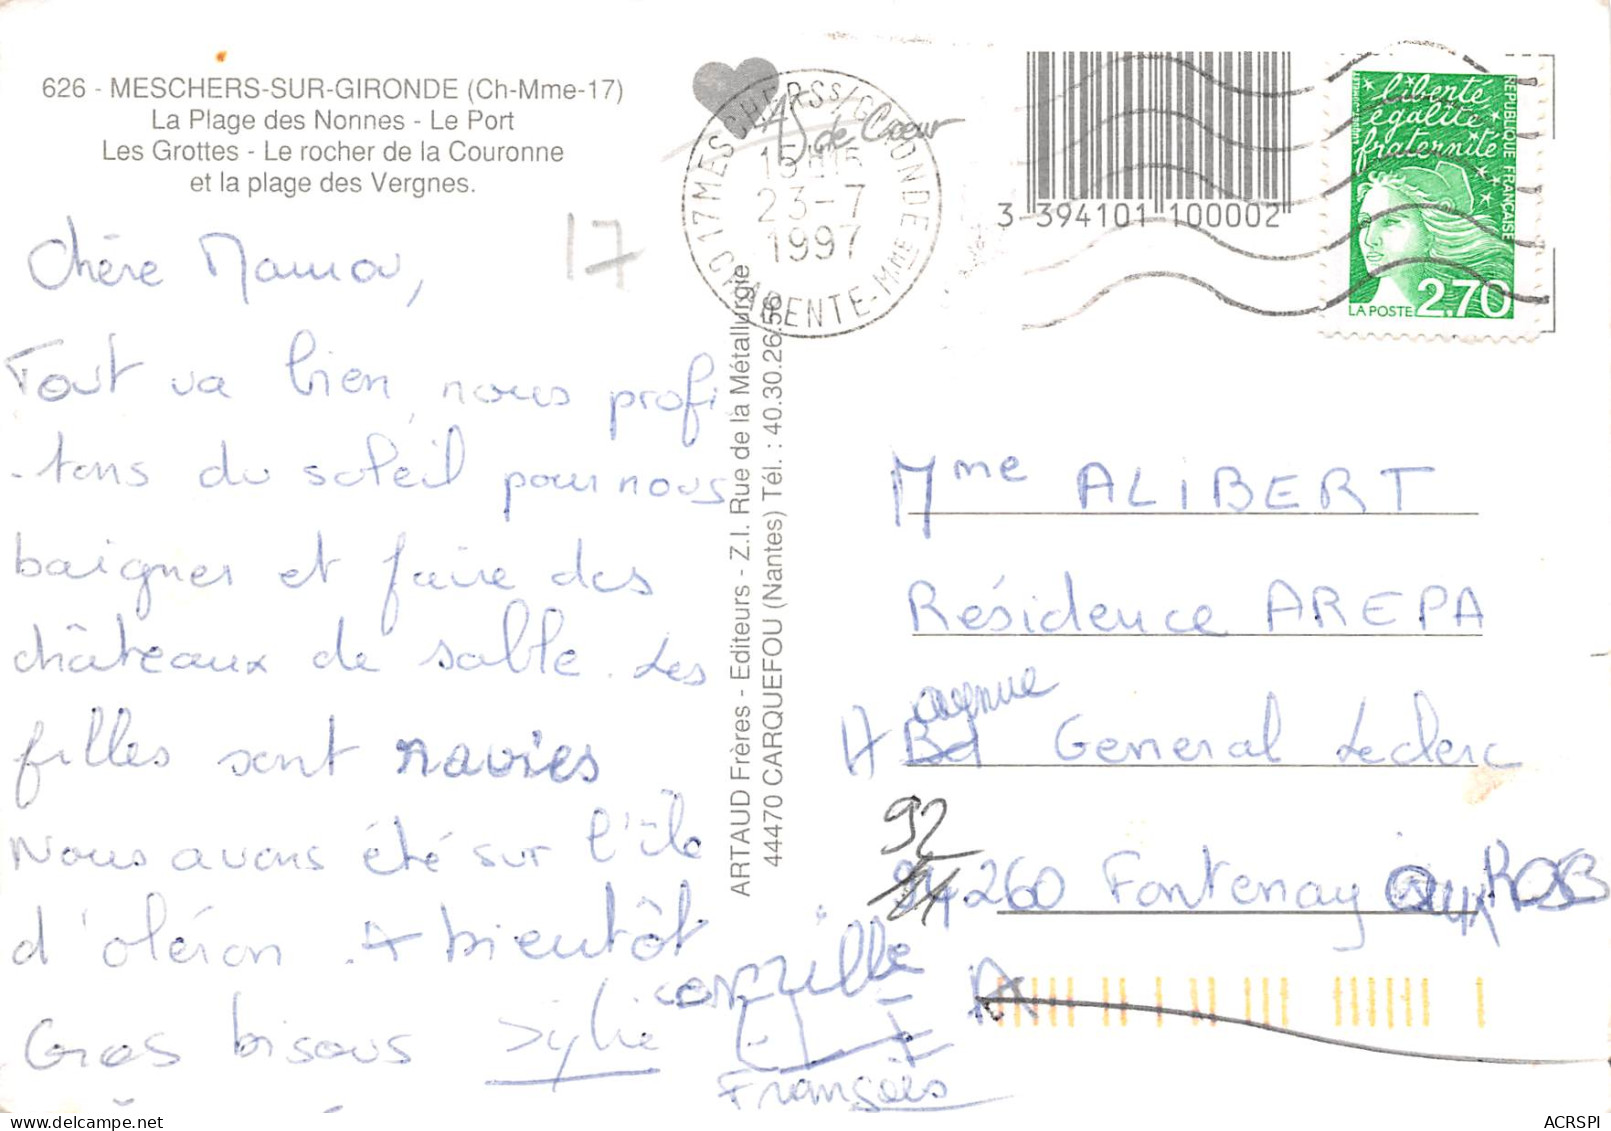 626 - MESCHERS-SUR-GIRONDE (Ch-Mme-17)
La Plage des Nonnes - Le Port
Les Grottes - Le rocher de la Couronne
et la plage des Vergnes.
17
Chère Mamov,
Tout va bien, nous profi
-tons du soleil pour nous
baigner et faire des
châteaux de sable. Les
filles sont ravies
Nous avons été sur l'île
d'oléron. A bientôt
Gros bisous Sylvie
camille
François
ARTAUD Frères - Editeurs - Z.I. Rue de la Métallurgie
44470 CARQUEFOU (Nantes) Tél. : 40.30.26.56
As de Cœur
17 MESCHERS S/GIRONDE
15H15
23-7
1997
CHARENTE-MME
3 394101 100002
liberté
égalité
fraternité
RÉPUBLIQUE FRANÇAISE
LA POSTE 2,70
Mme ALIBERT
Résidence AREPA
avenue
A Bd General Leclerc
92
94260 Fontenay aux ROSE
A
ACRSPI